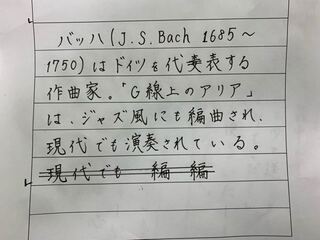 バッハ(J.S.Bach 1685〜
1750)はドイツを代表する
作曲家。「G線上のアリア」
は、ジャズ風にも編曲され、
現代でも演奏されている。
現代でも 編 編